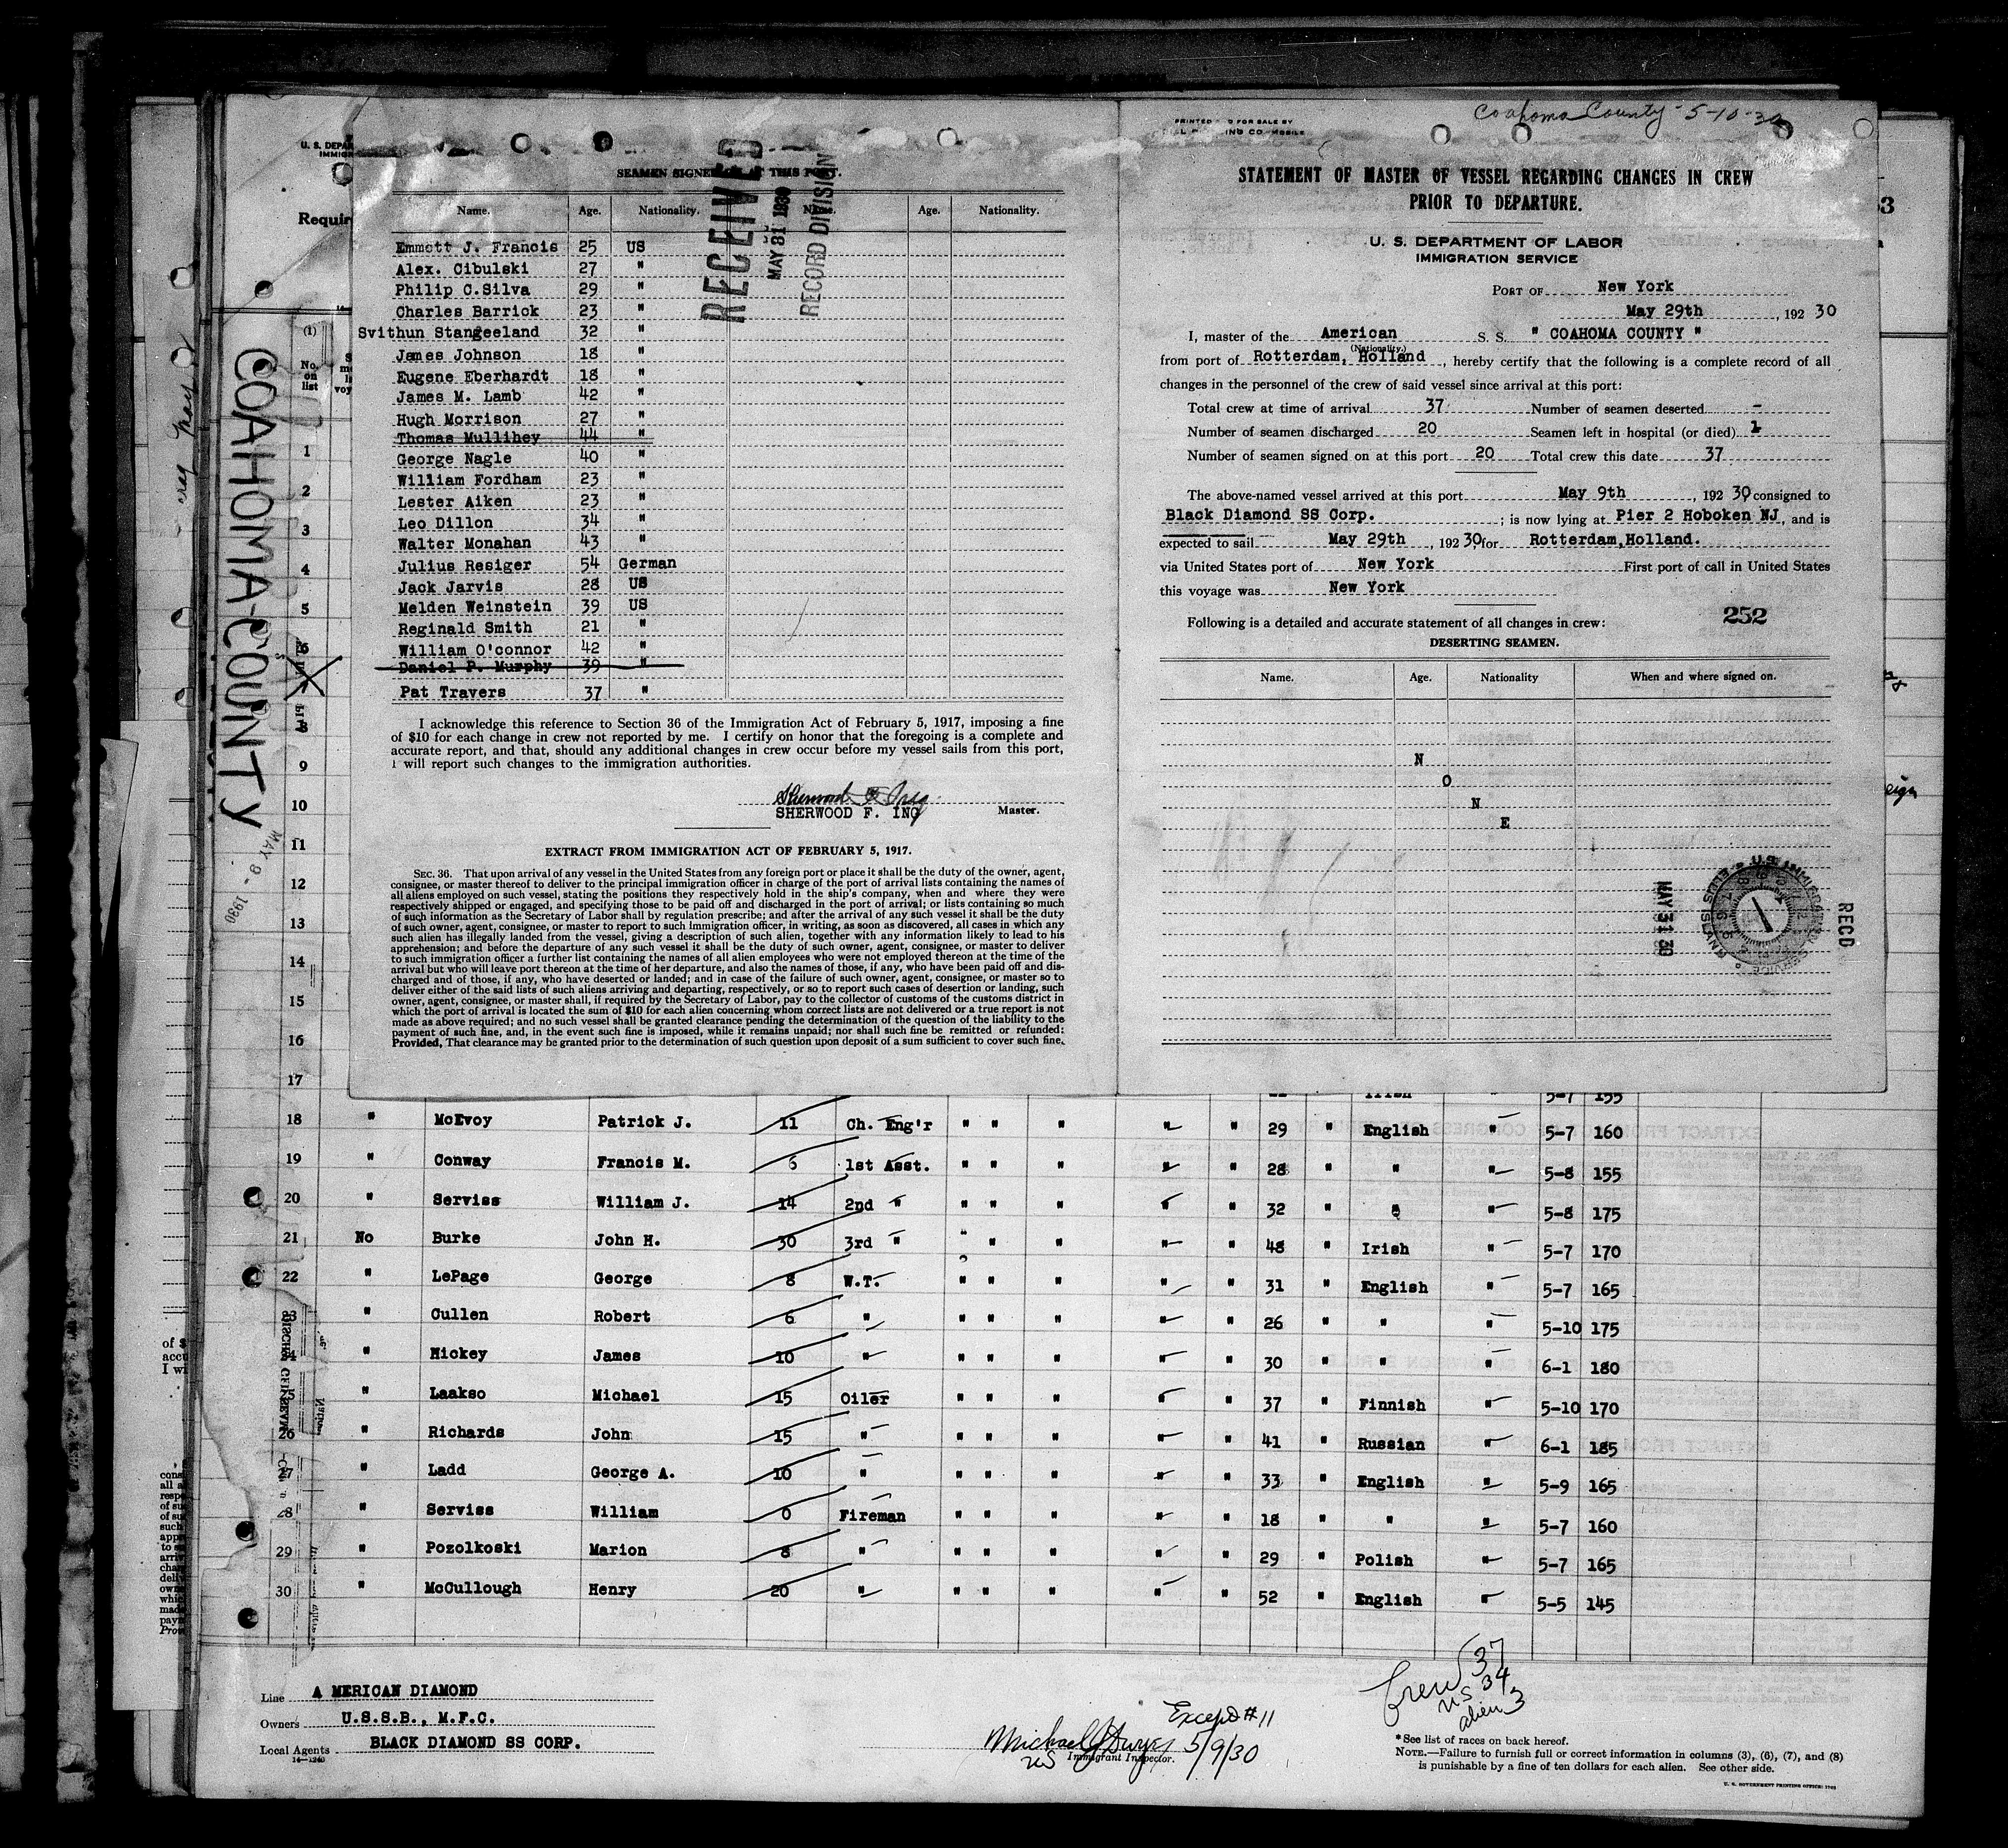 Coahoma County - 5-10-30
PRINTED FOR SALE BY
U. S. DEPAR
IMMIGR
Requir
SEAMEN SIGNED ON AT THIS PORT.
Name. Age. Nationality. Name. Age. Nationality.
RECEIVED
MAY 31 1930
RECORD DIVISION
Emmett J. Francis 25 US
Alex. Cibulski 27 "
Philip C.Silva 29 "
Charles Barrick 23 "
Svithun Stangeeland 32 "
James Johnson 18 "
Eugene Eberhardt 18 "
James M. Lamb 42 "
Hugh Morrison 27 "
Thomas Mullihey 44 "
George Nagle 40 "
William Fordham 23 "
Lester Aiken 23 "
Leo Dillon 34 "
Walter Monahan 43 "
Julius Resiger 54 German
Jack Jarvis 28 US
Melden Weinstein 39 US
Reginald Smith 21 "
William O'connor 42 "
Daniel P. Murphy 39 "
Pat Travers 37 "
I acknowledge this reference to Section 36 of the Immigration Act of February 5, 1917, imposing a fine
of $10 for each change in crew not reported by me. I certify on honor that the foregoing is a complete and
accurate report, and that, should any additional changes in crew occur before my vessel sails from this port,
I will report such changes to the immigration authorities.
Sherwood F. Ing
SHERWOOD F. ING Master.
EXTRACT FROM IMMIGRATION ACT OF FEBRUARY 5, 1917.
SEC. 36. That upon arrival of any vessel in the United States from any foreign port or place it shall be the duty of the owner, agent,
consignee, or master thereof to deliver to the principal immigration officer in charge of the port of arrival lists containing the names of
all aliens employed on such vessel, stating the positions they respectively hold in the ship's company, when and where they were
respectively shipped or engaged, and specifying those to be paid off and discharged in the port of arrival; or lists containing so much
of such information as the Secretary of Labor shall by regulation prescribe; and after the arrival of any such vessel it shall be the duty
of such owner, agent, consignee, or master to report to such immigration officer, in writing, as soon as discovered, all cases in which any
such alien has illegally landed from the vessel, giving a description of such alien, together with any information likely to lead to his
apprehension; and before the departure of any such vessel it shall be the duty of such owner, agent, consignee, or master to deliver
to such immigration officer a further list containing the names of all alien employees who were not employed thereon at the time of the
arrival but who will leave port thereon at the time of her departure, and also the names of those, if any, who have been paid off and dis-
charged and of those, if any, who have deserted or landed; and in case of the failure of such owner, agent, consignee, or master so to
deliver either of the said lists of such aliens arriving and departing, respectively, or so to report such cases of desertion or landing, such
owner, agent, consignee, or master shall, if required by the Secretary of Labor, pay to the collector of customs of the customs district in
which the port of arrival is located the sum of $10 for each alien concerning whom correct lists are not delivered or a true report is not
made as above required; and no such vessel shall be granted clearance pending the determination of the question of the liability to the
payment of such fine, and, in the event such fine is imposed, while it remains unpaid; nor shall such fine be remitted or refunded:
Provided, That clearance may be granted prior to the determination of such question upon deposit of a sum sufficient to cover such fine.
STATEMENT OF MASTER OF VESSEL REGARDING CHANGES IN CREW
PRIOR TO DEPARTURE.
U. S. DEPARTMENT OF LABOR
IMMIGRATION SERVICE
PORT OF New York
May 29th, 192 30
I, master of the American S. S. " COAHOMA COUNTY "
(Nationality.)
from port of Rotterdam, Holland, hereby certify that the following is a complete record of all
changes in the personnel of the crew of said vessel since arrival at this port:
Total crew at time of arrival 37 Number of seamen deserted -
Number of seamen discharged 20 Seamen left in hospital (or died) 1
Number of seamen signed on at this port 20 Total crew this date 37
The above-named vessel arrived at this port May 9th, 192 30, consigned to
Black Diamond SS Corp. ; is now lying at Pier 2 Hoboken NJ, and is
expected to sail May 29th, 192 30, for Rotterdam,Holland.
via United States port of New York First port of call in United States
this voyage was New York
252
Following is a detailed and accurate statement of all changes in crew:
DESERTING SEAMEN.
Name. Age. Nationality When and where signed on.
N
O
N
E
MAY 31 30
RECD
COAHOMA-COUNTY
MAY 9 - 1930
(1)
No. on list
1
2
3
4
5
6
8
9
10
11
12
13
14
15
16
17
5-7 155
18 " McEvoy Patrick J. 11 Ch. Eng'r " " " " " 29 " English " 5-7 160
19 " Conway Francis M. 6 1st Asst. " " " " " 28 " " " 5-8 155
20 " Serviss William J. 14 2nd " " " " " " 32 " " " 5-8 175
21 No Burke John H. 30 3rd " " " " " " 48 " Irish " 5-7 170
22 " LePage George 8 W.T. " " " " " 31 " English " 5-7 165
23 " Cullen Robert 6 " " " " " " 26 " " " 5-10 175
24 " Hickey James 10 " " " " " " 30 " " " 6-1 180
25 " Laakso Michael 15 Oiler " " " " " 37 " Finnish " 5-10 170
26 " Richards John 15 " " " " " " 41 " Russian " 6-1 185
27 " Ladd George A. 10 " " " " " " 33 " English " 5-9 165
28 " Serviss William 0 Fireman " " " " " 18 " " " 5-7 160
29 " Pozolkoski Marion 8 " " " " " " 29 " Polish " 5-7 165
30 " McCullough Henry 20 " " " " " " 52 " English " 5-5 145
Line A MERICAN DIAMOND
Owners U.S.S.B., M.F.C.
Local Agents BLACK DIAMOND SS CORP.
14-1240
Except #11
5/9/30
Immigrant Inspector.
Crew 37
US 34
alien 3
*See list of races on back hereof.
NOTE.—Failure to furnish full or correct information in columns (3), (6), (7), and (8)
is punishable by a fine of ten dollars for each alien. See other side.